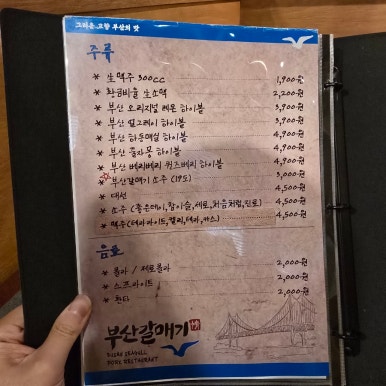 그리운 고향 부산의 맛
주류
* 生맥주 300cc 1,900원
* 황금비율 生소맥 2,200원
* 부산 오리지널 레몬 하이볼 3,900원
* 부산 얼그레이 하이볼 3,900원
* 부산 하동매실 하이볼 4,900원
* 부산 통자몽 하이볼 4,900원
* 부산 베리베리 퀸즈베리 하이볼 4,900원
* 부산갈매기 소주 (19도) 3,000원
* 대선 4,500원
* 소주 (좋은데이,참이슬,새로,처음처럼,진로) 4,500원
* 맥주(테라라이트,켈리,테라,카스) 4,500원
음료
* 콜라 / 제로콜라 2,000원
* 스프라이트 2,000원
* 환타 2,000원
부산갈매기
BUSAN SEAGULL
PORK RESTAURANT